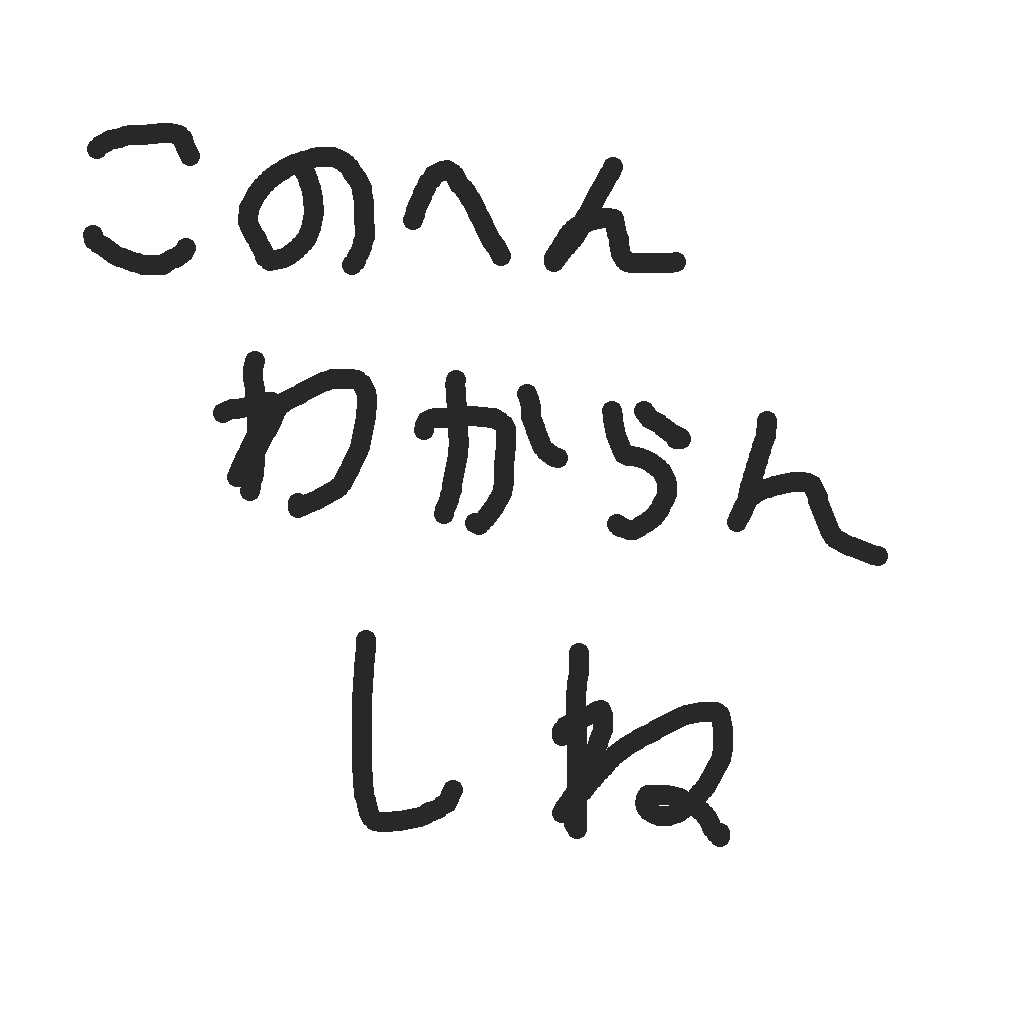 このへん
わからん
しね